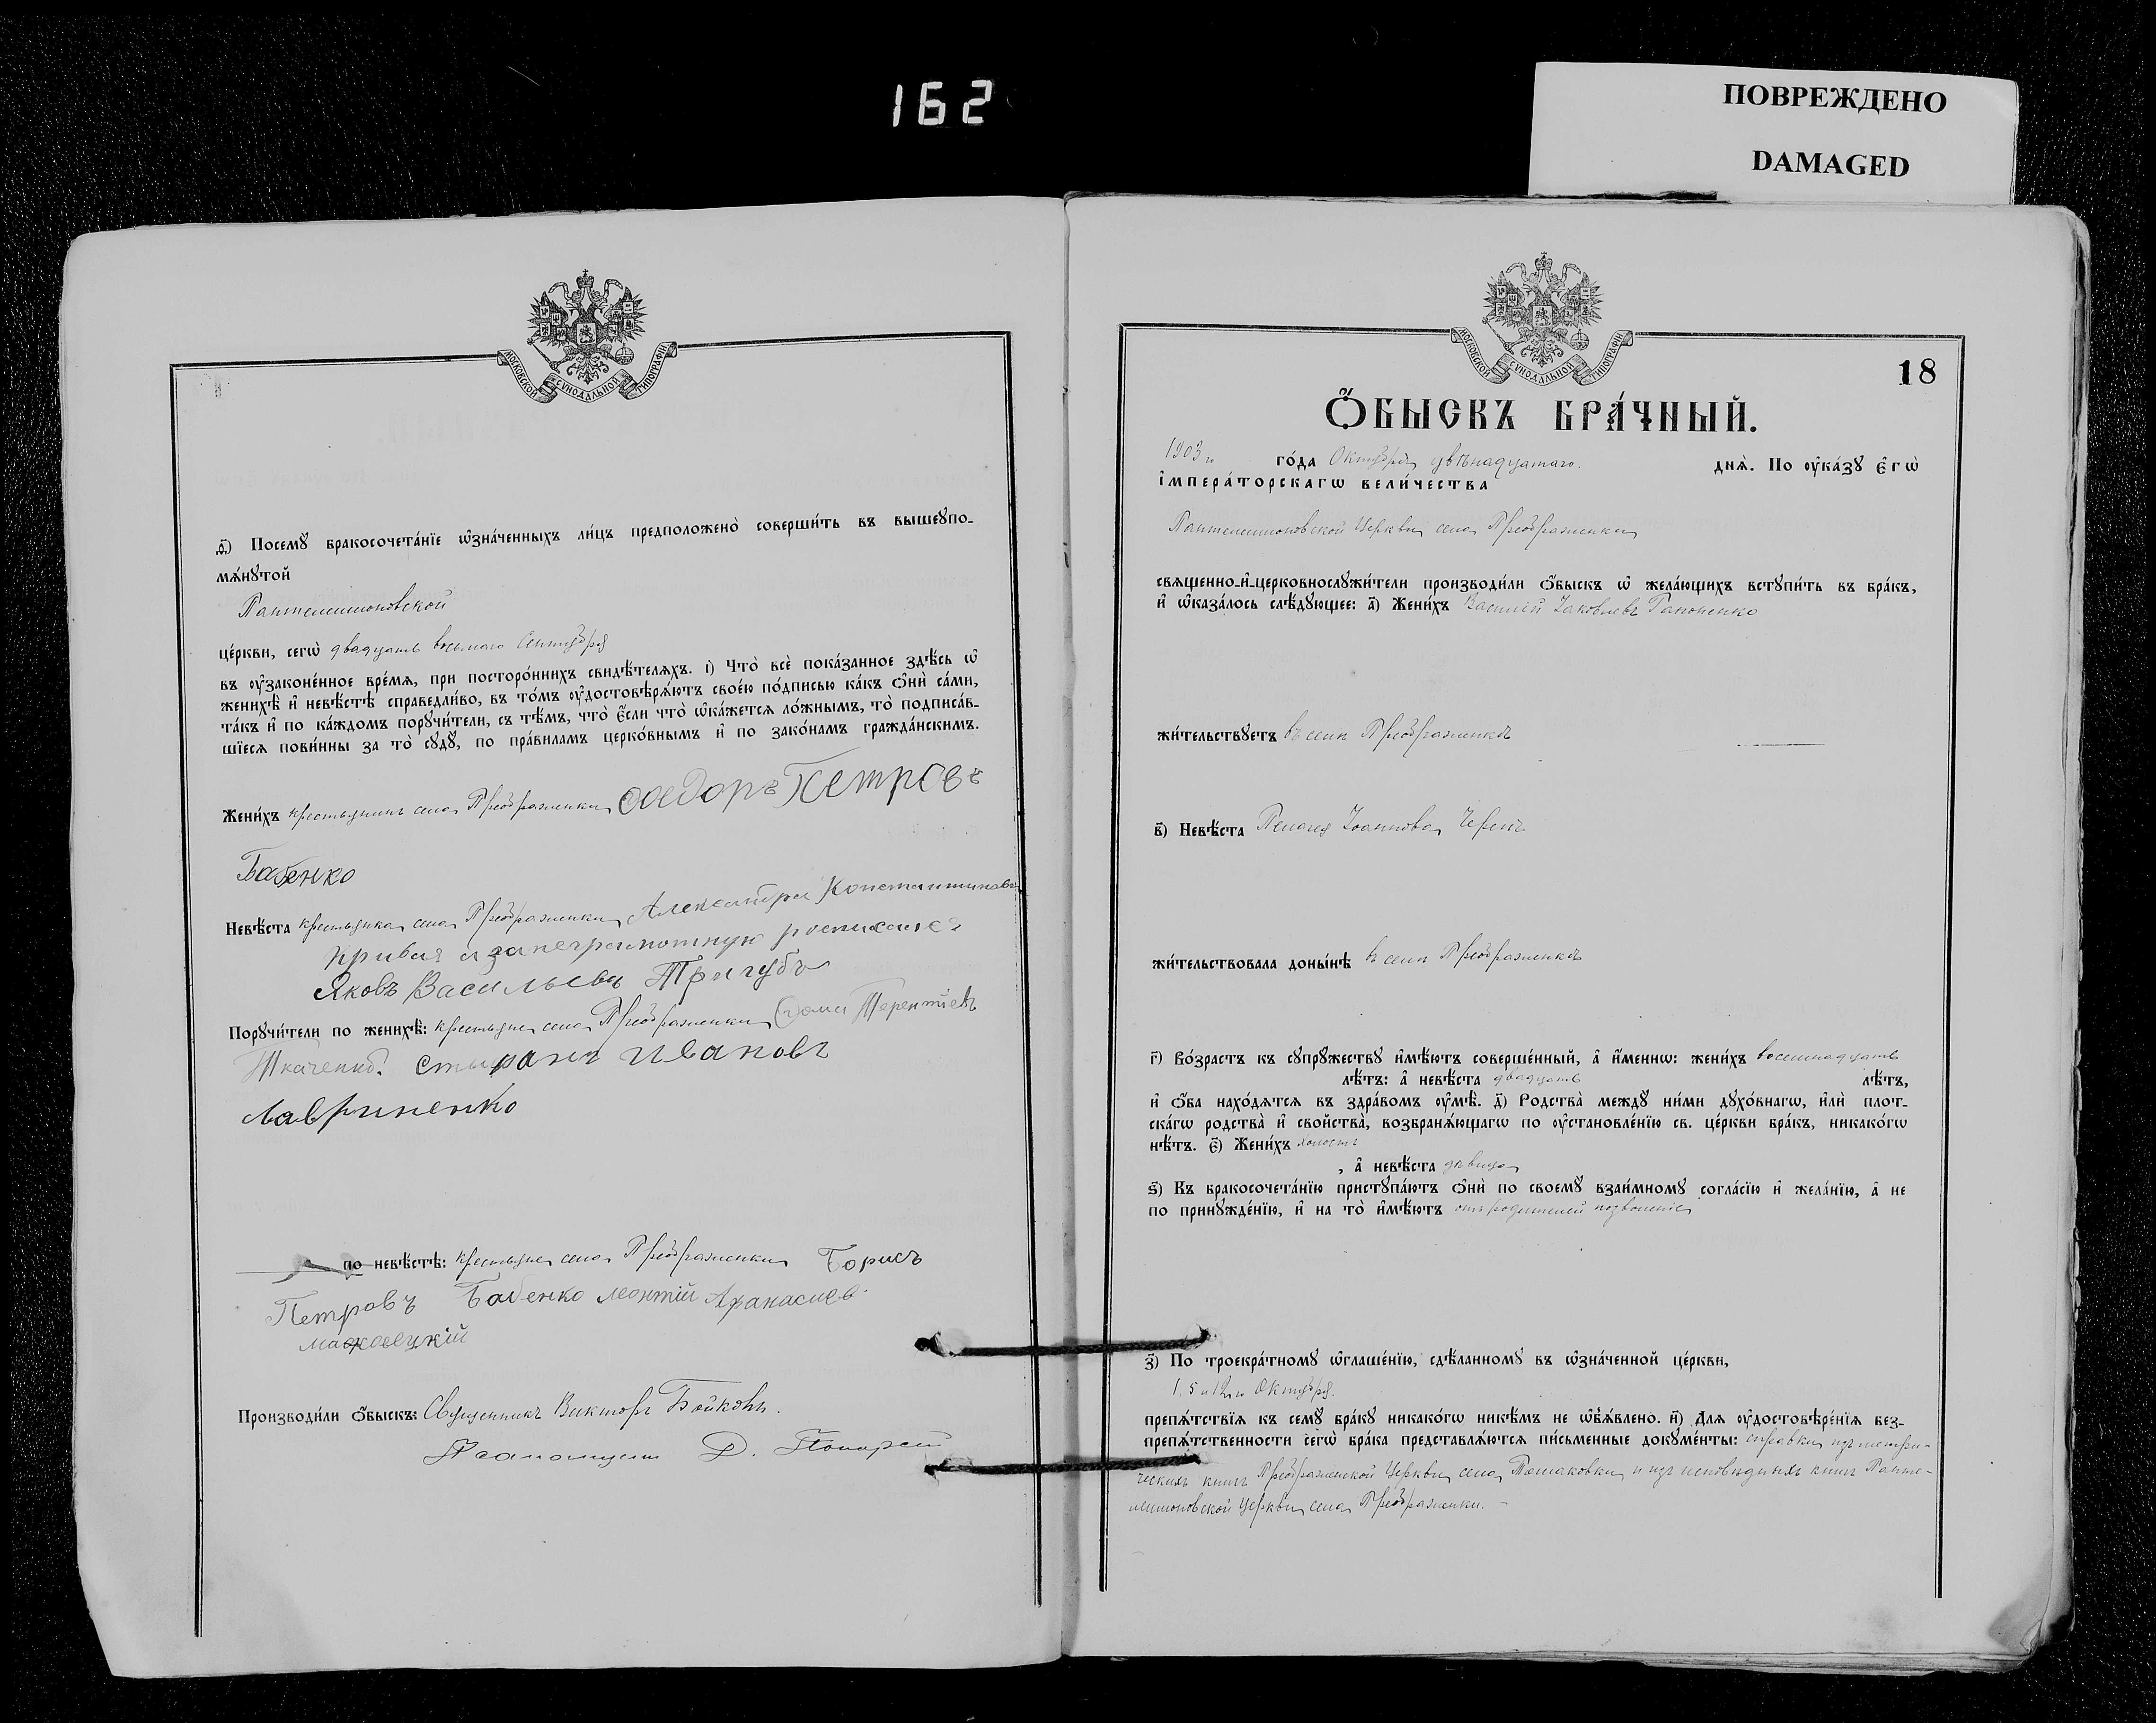 162
ПОВРЕЖДЕНО
DAMAGED
МОСКОВСКОЙ СУНОДАЛЬНОЙ ТИПОГРАФІИ
ѳ҃) Посемꙋ бракосочета́нїе ѡ҆зна́ченныхъ ли́цъ предположено̀ соверши́ть въ вышеꙋпо-
мѧ́нꙋтой
Пантелеимоновской
це́ркви, сегѡ̀ двадцать восьмаго Сентября
въ ᲂу҆законе́нное вре́мѧ, при посторо́ннихъ свидѣ́телѧхъ. і҃) Что̀ всѐ пока́занное здѣ́сь ѡ҆
женихѣ̀ и҆ невѣ́стѣ справедли́во, въ то́мъ ᲂу҆достовѣрѧ́ютъ свое́ю по́дписью ка́къ ѻ҆нѝ са́ми,
та́къ и҆ по ка́ждомъ порꙋчи́тели, съ тѣ́мъ, что̀ є҆́сли что̀ ѡ҆ка́жетсѧ ло́жнымъ, то̀ подписа́в-
шїесѧ пови́нны за то̀ сꙋдꙋ̀, по пра́виламъ церко́внымъ и҆ по зако́намъ гражда́нскимъ.
Жени́хъ крестьянинъ села Преображенки Ѳедоръ Петровъ
Бабенко
Невѣ́ста крестьянка села Преображенки Александра Константинова
Кривая а занеграмотную росписался
Яковъ Васильевъ Тригубъ
Порꙋчи́тели по женихѣ̀: крестьяне села Преображенки Ѳома Терентіевъ
Ткаченко. Стыфанъ Ивановъ
Лавриненко
по невѣ́стѣ: крестьяне села Преображенки Борисъ
Петровъ Бабенко Леонтій Афанасиев
Маковецкій
Производи́ли ѻ҆́быскъ: Священникъ Викторъ Бойковъ.
Псаломщикъ Д.
МОСКОВСКОЙ СУНОДАЛЬНОЙ ТИПОГРАФІИ
18
Ѻ҆́БЫСКЪ БРА́ЧНЫЙ.
1903 го го́да Октября двѣнадцатаго. днѧ̀. По ᲂу҆ка́зꙋ є҆гѡ̀
і҆мпера́торскагѡ вели́чества
Пантелеимоновской Церкви села Преображенки
свѧщенно-и҆-церковнослꙋжи́тели производи́ли ѻ҆́быскъ ѡ҆ жела́ющихъ встꙋпи́ть въ бра́къ,
и҆ ѡ҆каза́лось слѣ́дꙋющее: а҃) Жени́хъ Василій Іаковлевъ Гапоненко
жи́тельствꙋетъ въ селѣ Преображенкѣ
в҃) Невѣ́ста Пелагея Іоаннова Черепъ
жи́тельствовала доны́нѣ въ селѣ Преображенкѣ
г҃) Во́зрастъ къ сꙋпрꙋ́жествꙋ и҆мѣ́ютъ соверше́нный, а҆ и҆́меннѡ: жени́хъ восемнадцать
лѣ́тъ: а҆ невѣ́ста двадцать лѣ́тъ,
и҆ ѻ҆́ба нахо́дѧтсѧ въ здра́вомъ ᲂу҆мѣ̀. д҃) Родства̀ междꙋ̀ ни́ми дꙋхо́внагѡ, и҆лѝ плот-
ска́гѡ родства̀ и҆ свойства̀, возбранѧ́ющагѡ по ᲂу҆становле́нїю св. це́ркви бра́къ, никако́гѡ
нѣ́тъ. є҃) Жени́хъ холостъ
, а҆ невѣ́ста дѣвица
ѕ҃) Къ бракосочета́нїю пристꙋпа́ютъ ѻ҆нѝ по своемꙋ̀ взаи́мномꙋ согла́сїю и҆ жела́нїю, а҆ не
по принꙋжде́нїю, и҆ на то̀ и҆мѣ́ютъ отъ родителей позволеніе
з҃) По троекра́тномꙋ ѡ҆глаше́нїю, сдѣ́ланномꙋ въ ѡ҆зна́ченной це́ркви,
1, 5 и 12 го Октября.
препѧ́тствїѧ къ семꙋ̀ бра́кꙋ никако́гѡ никѣ́мъ не ѡ҆б̾ѧ́влено. и҃) Длѧ ᲂу҆достовѣре́нїѧ без-
препѧ́тственности сегѡ̀ бра́ка представлѧ́ютсѧ пи́сьменные докꙋме́нты: справки изъ метри-
ческихъ книгъ Преображенской Церкви села Томаковки и изъ исповѣдныхъ книгъ Панте-
леимоновской Церкви села Преображенки.